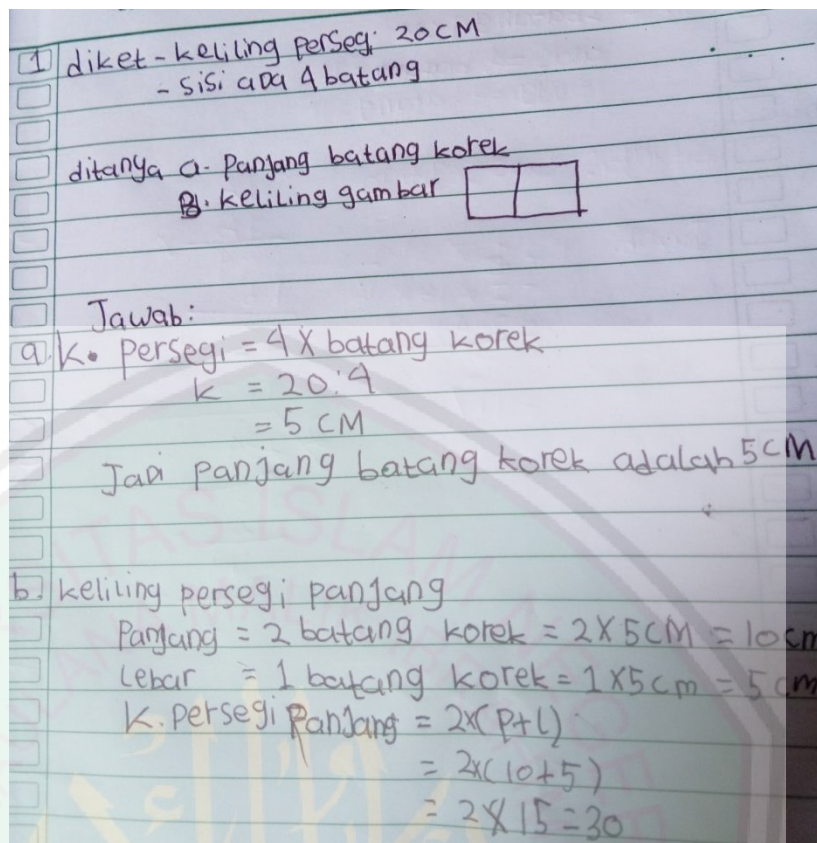 1 diket - keliling persegi 20 CM
- sisi ada 4 batang
ditanya a. Panjang batang korek
B. keliling gambar
Jawab:
a. K. persegi = 4 x batang korek
k = 20:4
= 5 CM
Jadi panjang batang korek adalah 5CM
b. keliling persegi panjang
Panjang = 2 batang korek = 2 x 5 CM = 10 cm
Lebar = 1 batang korek = 1 x 5 cm = 5 cm
K. persegi Panjang = 2x(P+L)
= 2x(10+5)
= 2 x 15 = 30